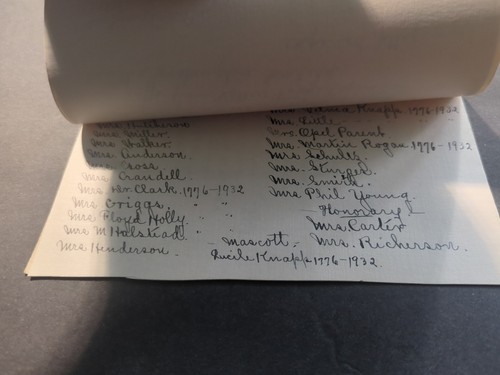 Mrs. Hutcherson
Mrs. Miller.
Mrs. Walker.
Mrs. Anderson.
Mrs. Cross
Mrs. Crandell.
Mrs. Wm. Clark. 1776-1932
Mrs. Griggs. " "
Mrs. Floyd Holly. " "
Mrs. M Halstead. " "
Mrs. Henderson.
Knapp. 1776-1932
Mrs.
Mrs. Opel Parent
Mrs. Martin Rogan 1776-1932
Mrs. Schultz.
Mrs.
Mrs. Smith.
Mrs. Phil Young.
Honorary
Mrs. Carter
Mascott. - Mrs. Richerson.
Lucile Knapp 1776-1932.